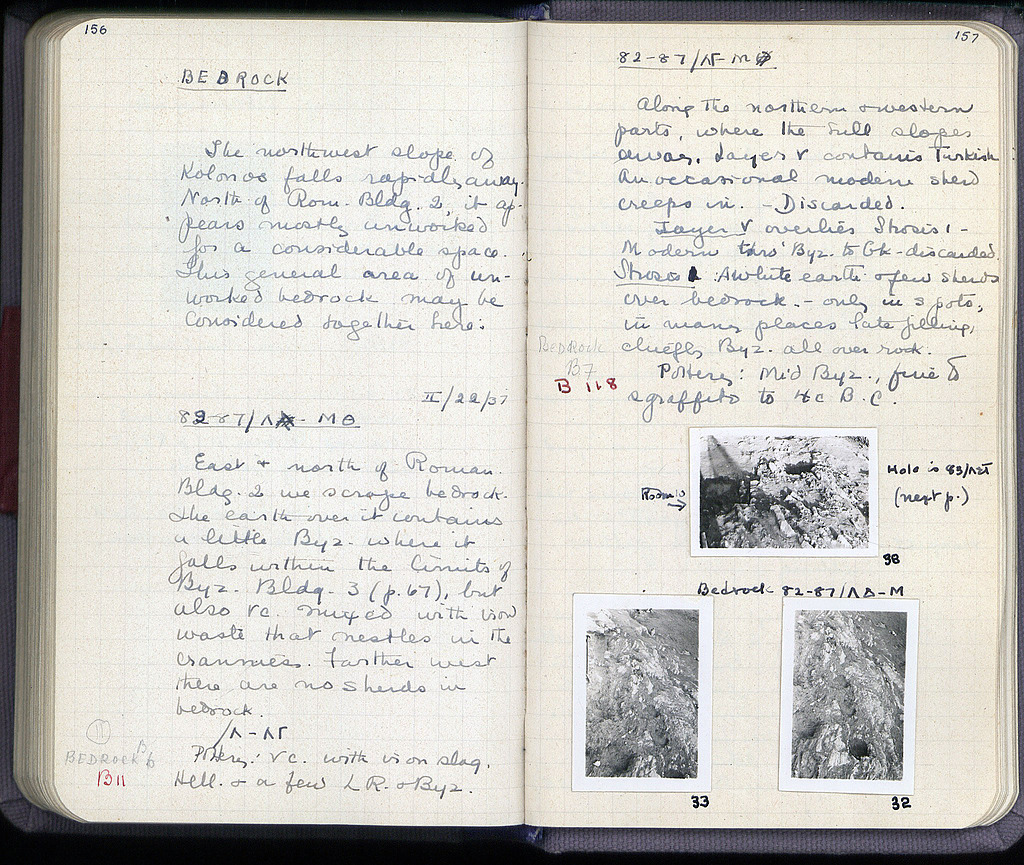 156
BEDROCK
The northwest slope of
Kolonos falls rapidly away.
North of Rom. Bldg. 2, it ap-
pears mostly unworked
for a considerable space.
This general area of un-
worked bedrock may be
considered together here:
II/22/37
82-87/ - ΜΘ
East + north of Roman
Bldg. 2 we scrape bedrock.
The earth over it contains
a little Byz. where it
falls within the limits of
Byz. Bldg. 3 (p. 67), but
also Vc. mixed with iron
waste that nestles in the
crannies. Farther west
there are no sherds in
bedrock.
/Λ-ΛΓ
Pottery: Vc. with iron slag.
Hell. + a few L R. + Byz.
11
BEDROCK B 6
B11
157
82-87/ - Μ
Along the northern + western
parts, where the fill slopes
away, Layer V contains Turkish
An occasional modern sherd
creeps in. - Discarded.
Layer V overlies Strosis 1 -
Modern thro' Byz. to Gk - discarded.
Strosis 1: A white earth + few sherds
over bedrock - only in spots,
in many places late filling,
chiefly Byz. all over rock.
Pottery: Mid Byz., fine
sgraffito to 4c B.C.
BEDROCK
B7
B 118
Room 10
→
Hole is 83/
(next p.)
38
Bedrock 82-87/ΛΔ-Μ
33
32